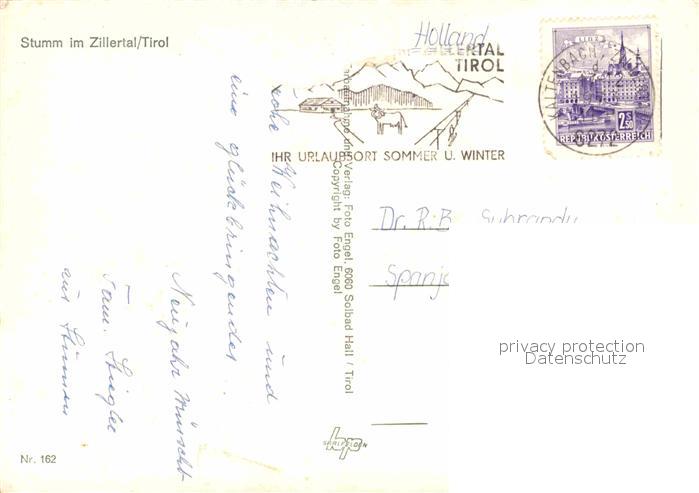 Stumm im Zillertal/Tirol
Holland
ZILLERTAL
TIROL
IHR URLAUBSORT SOMMER U. WINTER
LINZ
KALTENBACH
2.50 S
REPUBLIK ÖSTERREICH
Frohe Weihnachten und
ein glückbringendes
Neujahr wünscht
Fam.
aus Stumm
Verlag: Foto Engel, 6060 Solbad Hall / Tirol
Copyright by Foto Engel
Dr. R. B. 
Spanje
privacy protection
Datenschutz
SAALFELDEN
Nr. 162